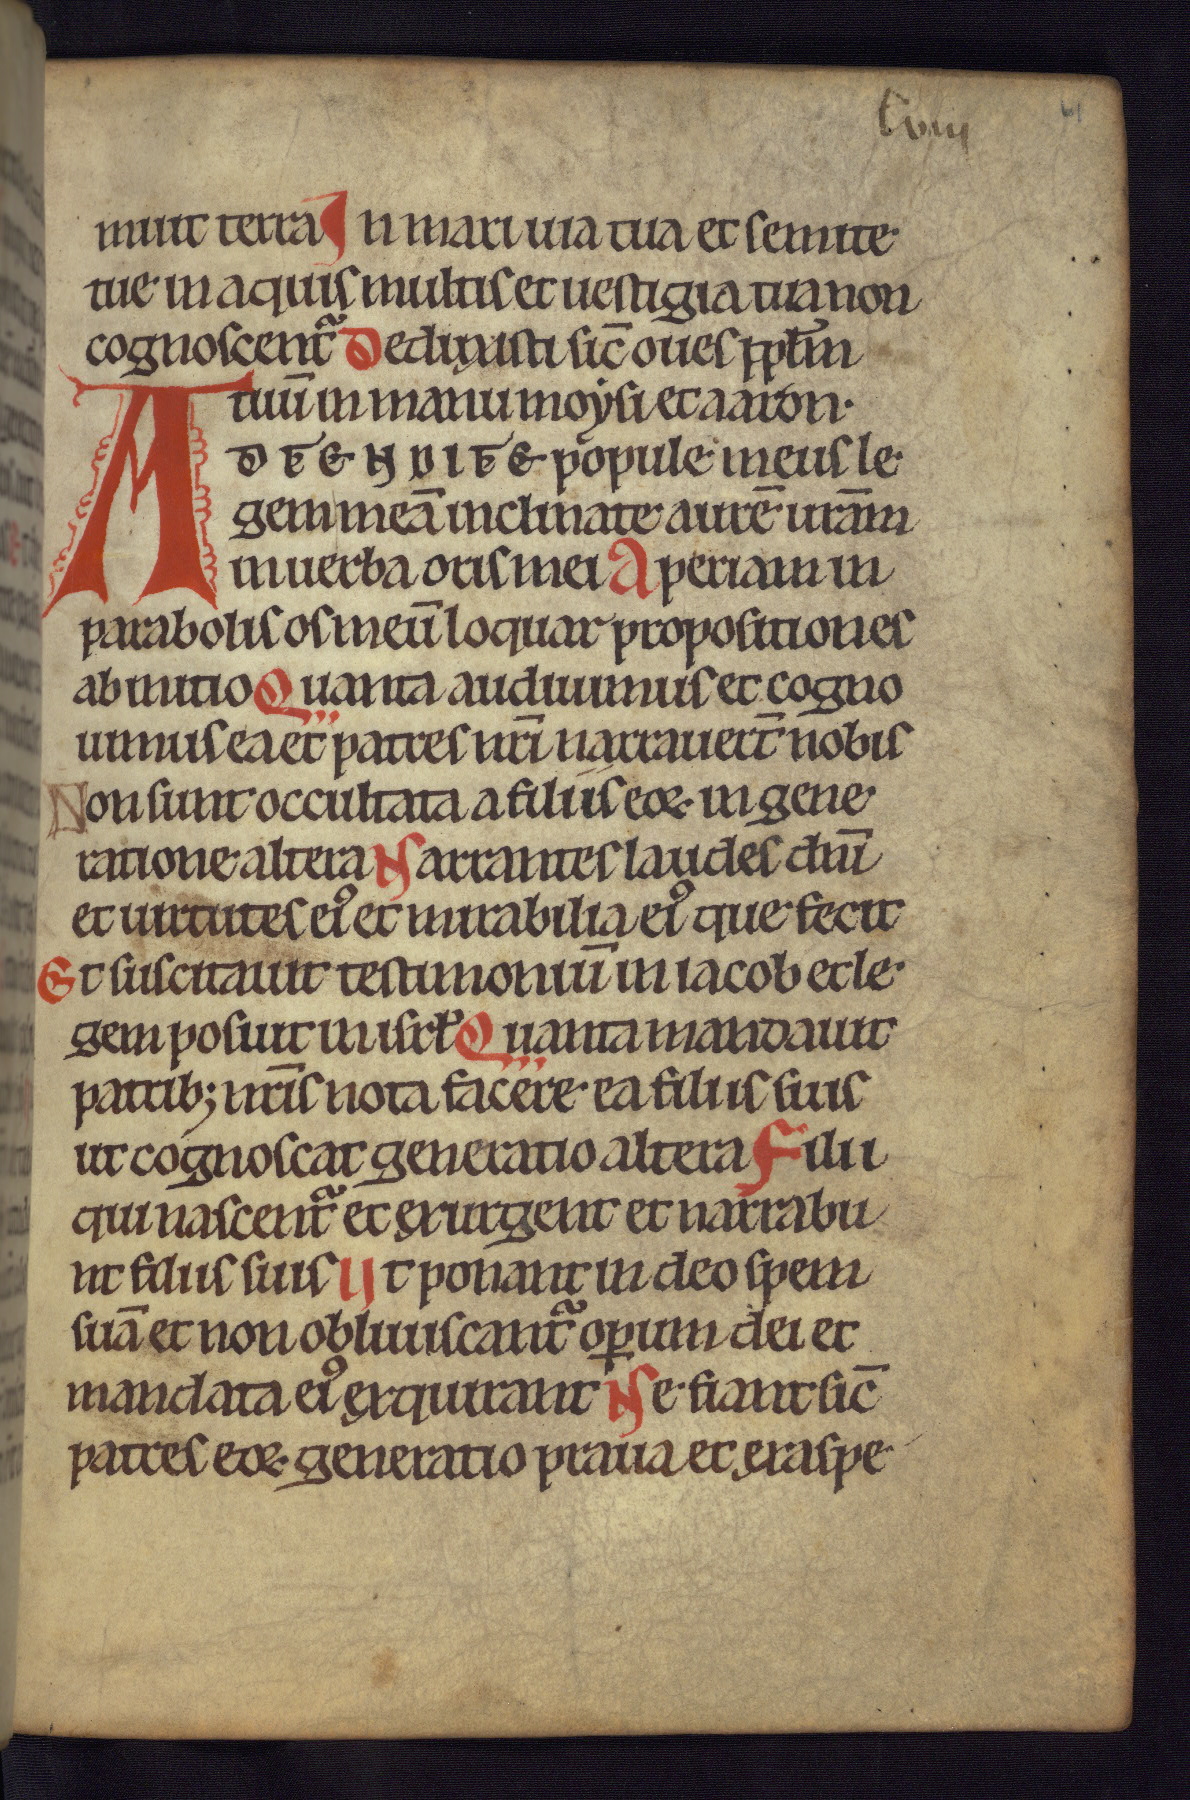 lviiij
muit terra In mari uia tua et semite
tue in aquis multis et uestigia tua non
cognoscent᷑ Deduxisti sic̄ oues ppl̄m
tuū in manu moẏsi et aaron.
ADTENDITE popule meus le
gem meā inclinate aurē urām
in uerba oris mei Aperiam in
parabolis os meū loquar propositiones
ab initio Quanta audiuimus et cogno
uimus ea et patres nr̄i narrauerт̄ nobis
Non sunt occultata a filiis eoꝝ in gene
ratione altera Narrantes laudes dn̄i
et uirtutes eiꝰ et mirabilia eiꝰ que fecit
Et suscitauit testimoniū in iacob et le
gem posuit in isrł Quanta mandauit
patrib; nr̄is nota facere ea filiis suis
ut cognoscat generatio altera Filii
qui nascent᷑ et exurgent et narrabu
nt filiis suis Ut ponant in deo spem
suā et non obliuiscant᷑ oꝑum dei et
mandata eiꝰ exquirant Ne fiant sic̄
patres eoꝝ generatio praua et exaspe